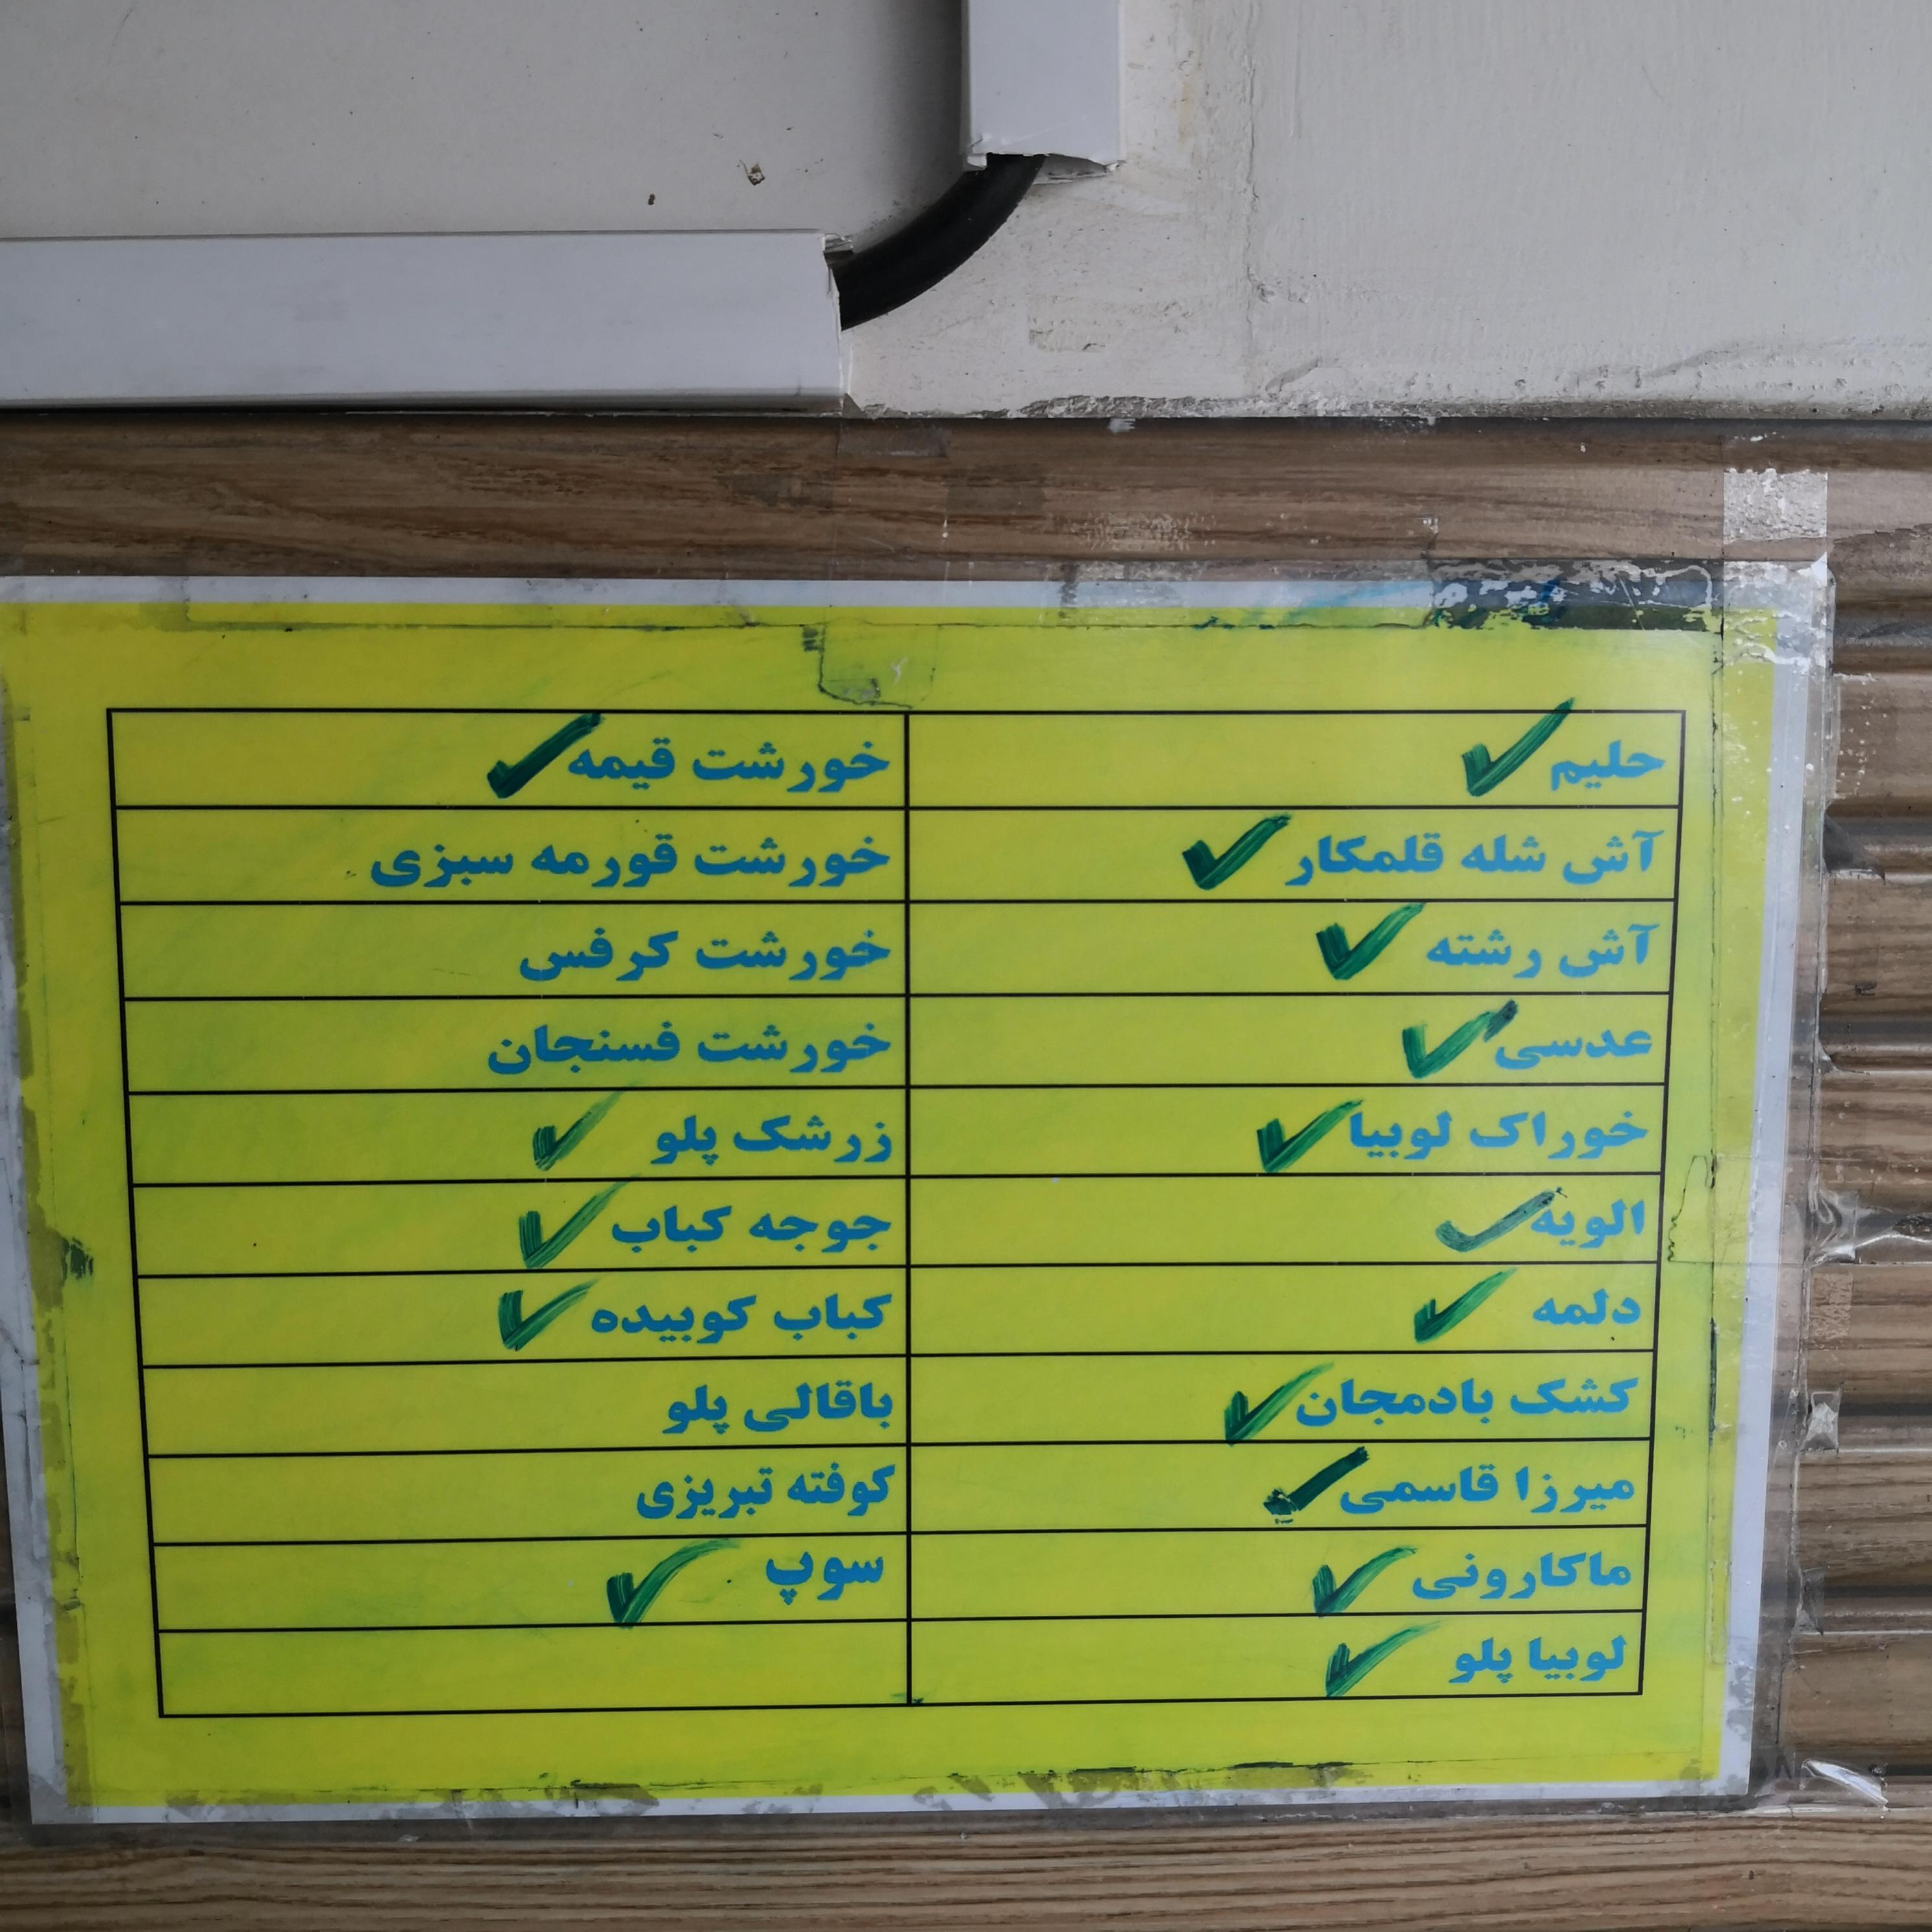 حلیم
آش شله قلمکار
آش رشته
عدسی
خوراک لوبیا
الویه
دلمه
کشک بادمجان
میرزا قاسمی
ماکارونی
لوبیا پلو
خورشت قیمه
خورشت قورمه سبزی
خورشت کرفس
خورشت فسنجان
زرشک پلو
جوجه کباب
کباب کوبیده
باقالی پلو
کوفته تبریزی
سوپ